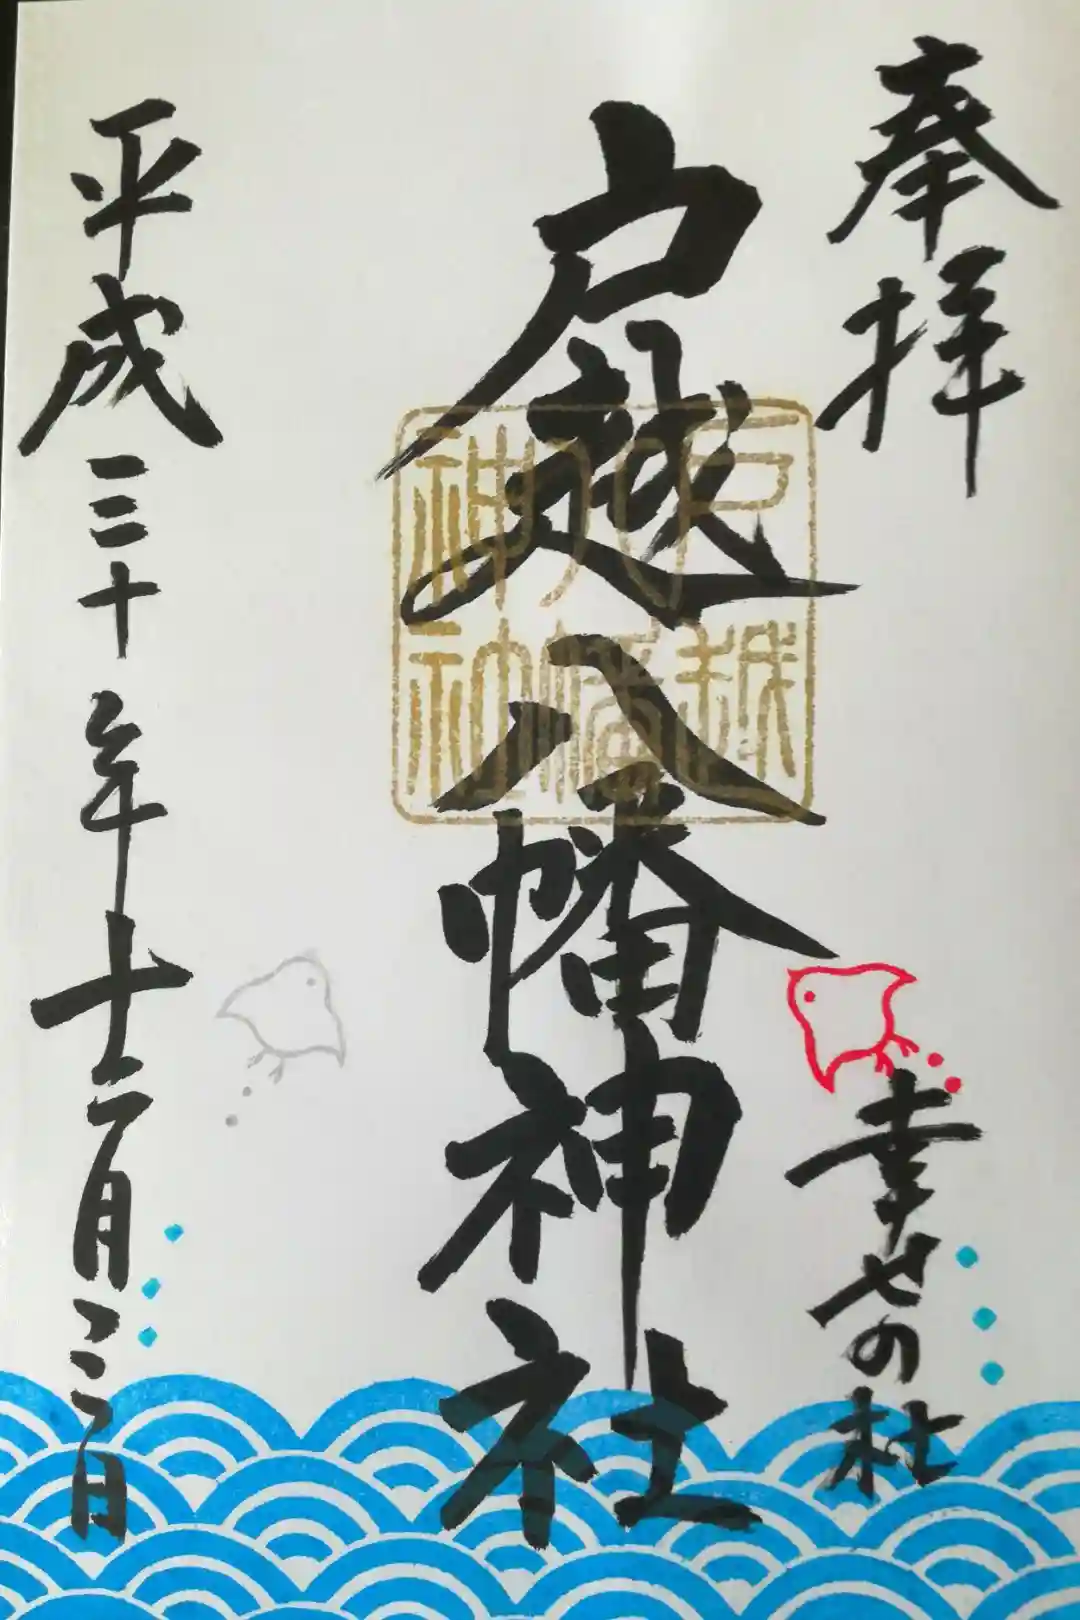 奉拝
幸せの杜
戸越八幡神社
戸越
八幡
神社
平成三十年十二月三日